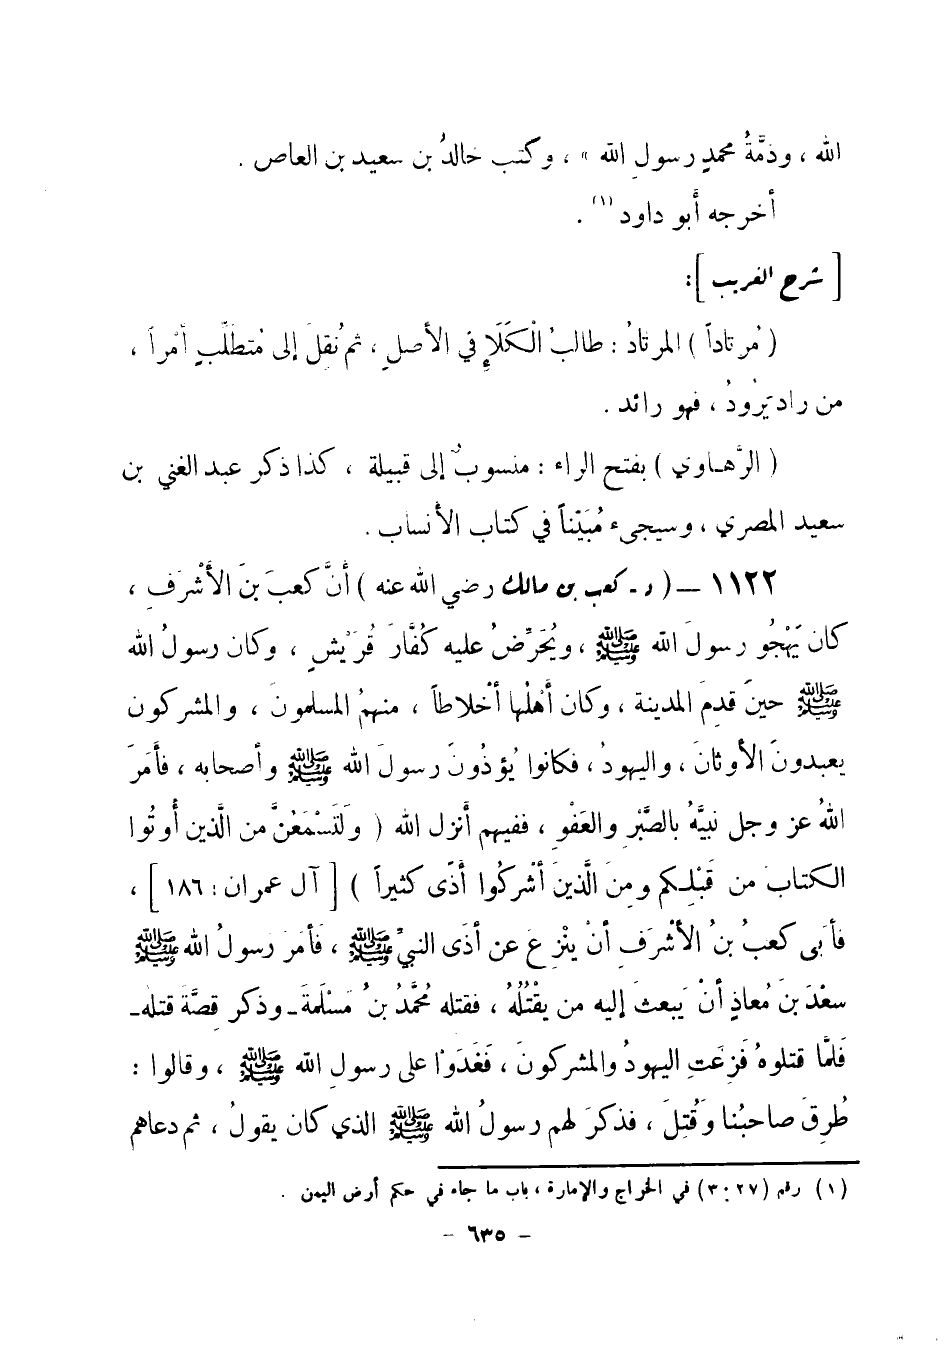 الله ، وذمَّةُ محمدٍ رسولِ الله » ، وكتب خالدُ بن سعيد بن العاص .
أخرجه أبو داود (١) .
[ شرح الغريب ]:
( مُرتاداً ) المرتادُ : طالبُ الْكَلَإِ في الأصلِ ، ثم نُقِلَ إلى مُتطلِّبٍ أمْراً ،
من راد يَرُودُ ، فهو رائد .
( الرَّهاوي ) بفتح الراء : منسوبٌ إلى قبيلة ، كذا ذكر عبد الغني بن
سعيد المصري ، وسيجيء مُبَيَّناً في كتاب الأنساب .
١١٢٢ – ( د - كعب بن مالك رضي الله عنه ) أنَّ كعبَ بنَ الأشْرَفِ ،
كان يَهْجُو رسولَ الله ﷺ ، ويُحَرِّضُ عليه كُفَّارَ قُرَيْشٍ ، وكان رسولُ الله
ﷺ حينَ قدِمَ المدينة ، وكان أهْلُها أخْلاطاً ، منهمُ المسلمونَ ، والمشركون
يعبدونَ الأوثانَ ، واليهودُ ، فكانوا يُؤذُونَ رسولَ الله ﷺ وأصحابه ، فأمَرَ
اللهُ عز وجل نبيَّهُ بالصَّبْرِ والعَفْوِ ، ففيهم أنزل الله ( ولَتَسْمَعُنَّ من الَّذين أُوتُوا
الكتابَ من قَبْلِكم ومِنَ الَّذينَ أشْركُوا أذًى كثيراً ) [ آل عمران : ١٨٦ ] ،
فأبى كعبُ بنُ الأشْرَفِ أنْ يَنْزِعَ عن أذَى النبيِّ ﷺ ، فأمَرَ رسولُ الله ﷺ
سعْدَ بنَ مُعاذٍ أنْ يَبعثَ إليه من يقْتُلُهُ ، فقتله مُحَمَّدُ بنُ مَسْلَمةَ ـ وذكر قِصَّةَ قتله ـ
فلمَّا قتلوهُ فَزِعَتِ اليهودُ والمشركونَ ، فَغَدَوْا على رسولِ الله ﷺ ، وقالوا :
طُرِقَ صاحبُنا وَقُتِلَ ، فذكرَ لهم رسولُ الله ﷺ الذي كان يقولُ ، ثم دعاهم
(١) رقم (٣٠٢٧) في الخراج والإمارة ، باب ما جاء في حكم أرض اليمن .
- ٦٣٥ -